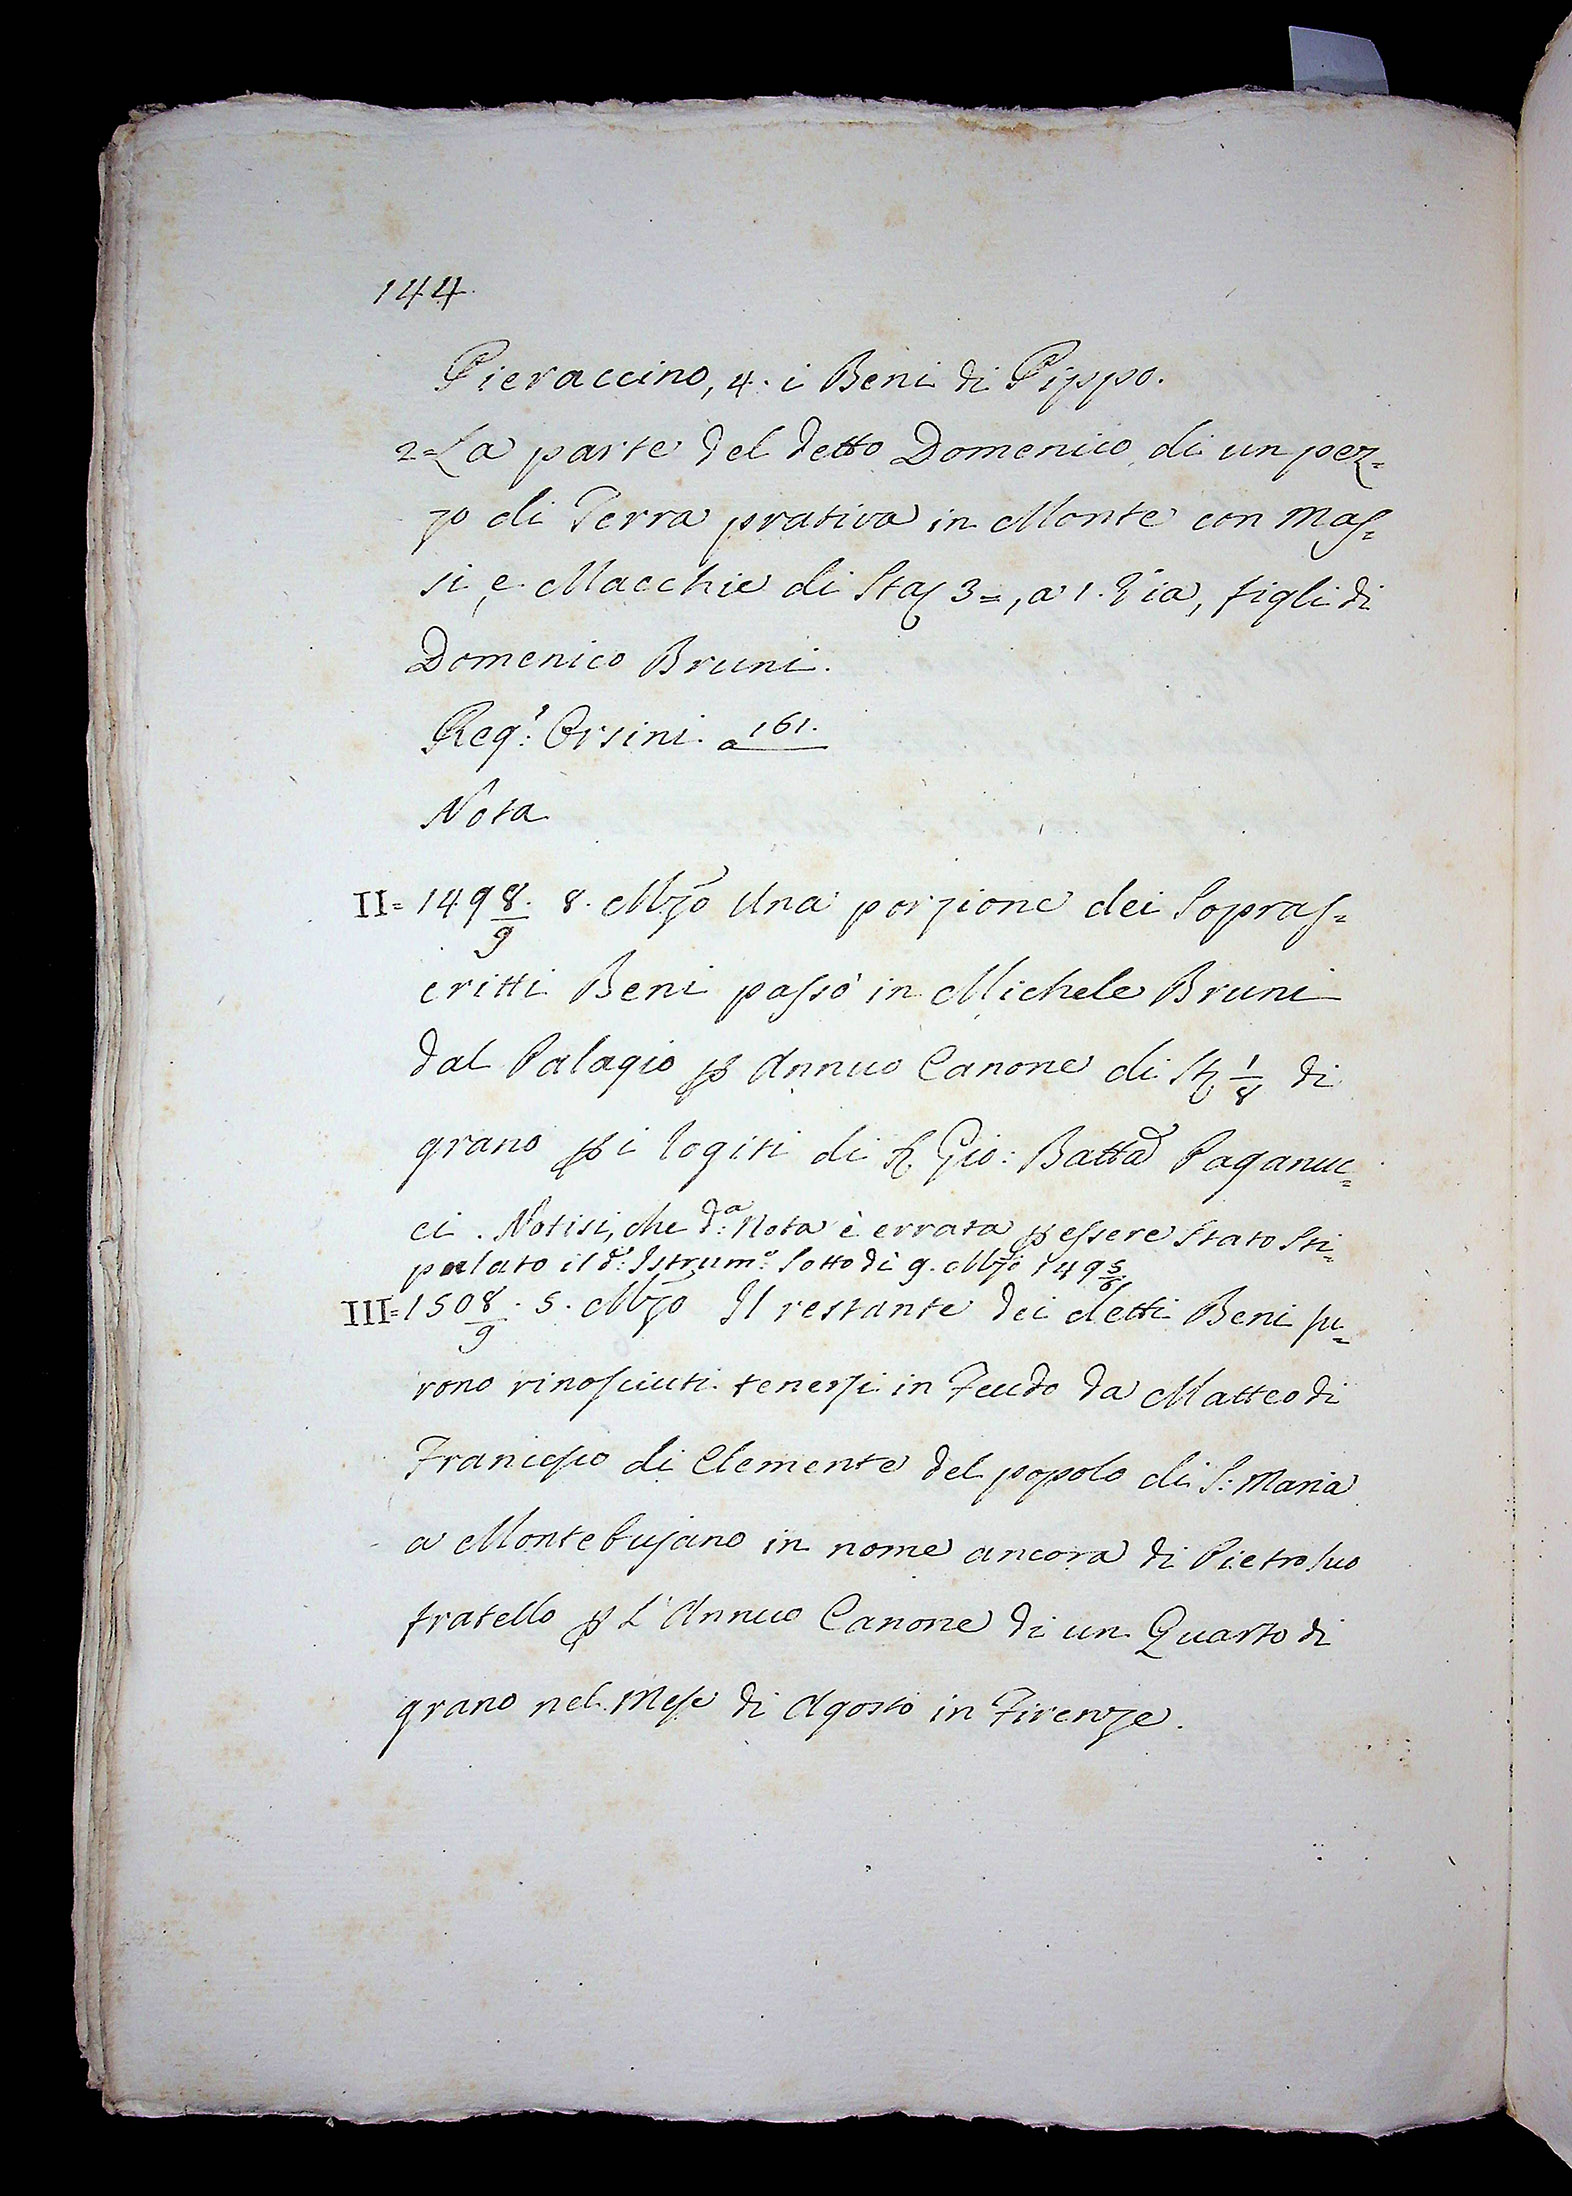 144
Pieraccino, 4. i Beni di Pippo.
2=La parte del detto Domenico di un pez=
zo di Terra prativa in Monte con Mas=
si, e Macchie di Sta 3=, a 1. Via, figli di
Domenico Bruni.
Reg.º Orsini. a 161.
Nota
II= 1498/9. 8. Mzo Una porzione dei Sopras=
critti Beni passò in Michele Bruni
dal Palagio p Annuo Canone di St 1/8 di
grano p i rogiti di Gio: Batta Paganuc=
ci. Notisi, che d.a Nota è errata p essere Stato Sti=
pulato il d.º Istrum.º Sotto dì 9. Mzo 1495/6
III=1508/9. 5. Mzo Il restante dei detti Beni fu=
rono rinosciuti tenersi in Feudo da Matteo di
Francesco di Clemente del popolo di S: Maria
a Montebujano in nome ancora di Pietro suo
fratello p L'Annuo Canone di un Quarto di
grano nel Mese di Agosto in Firenze.